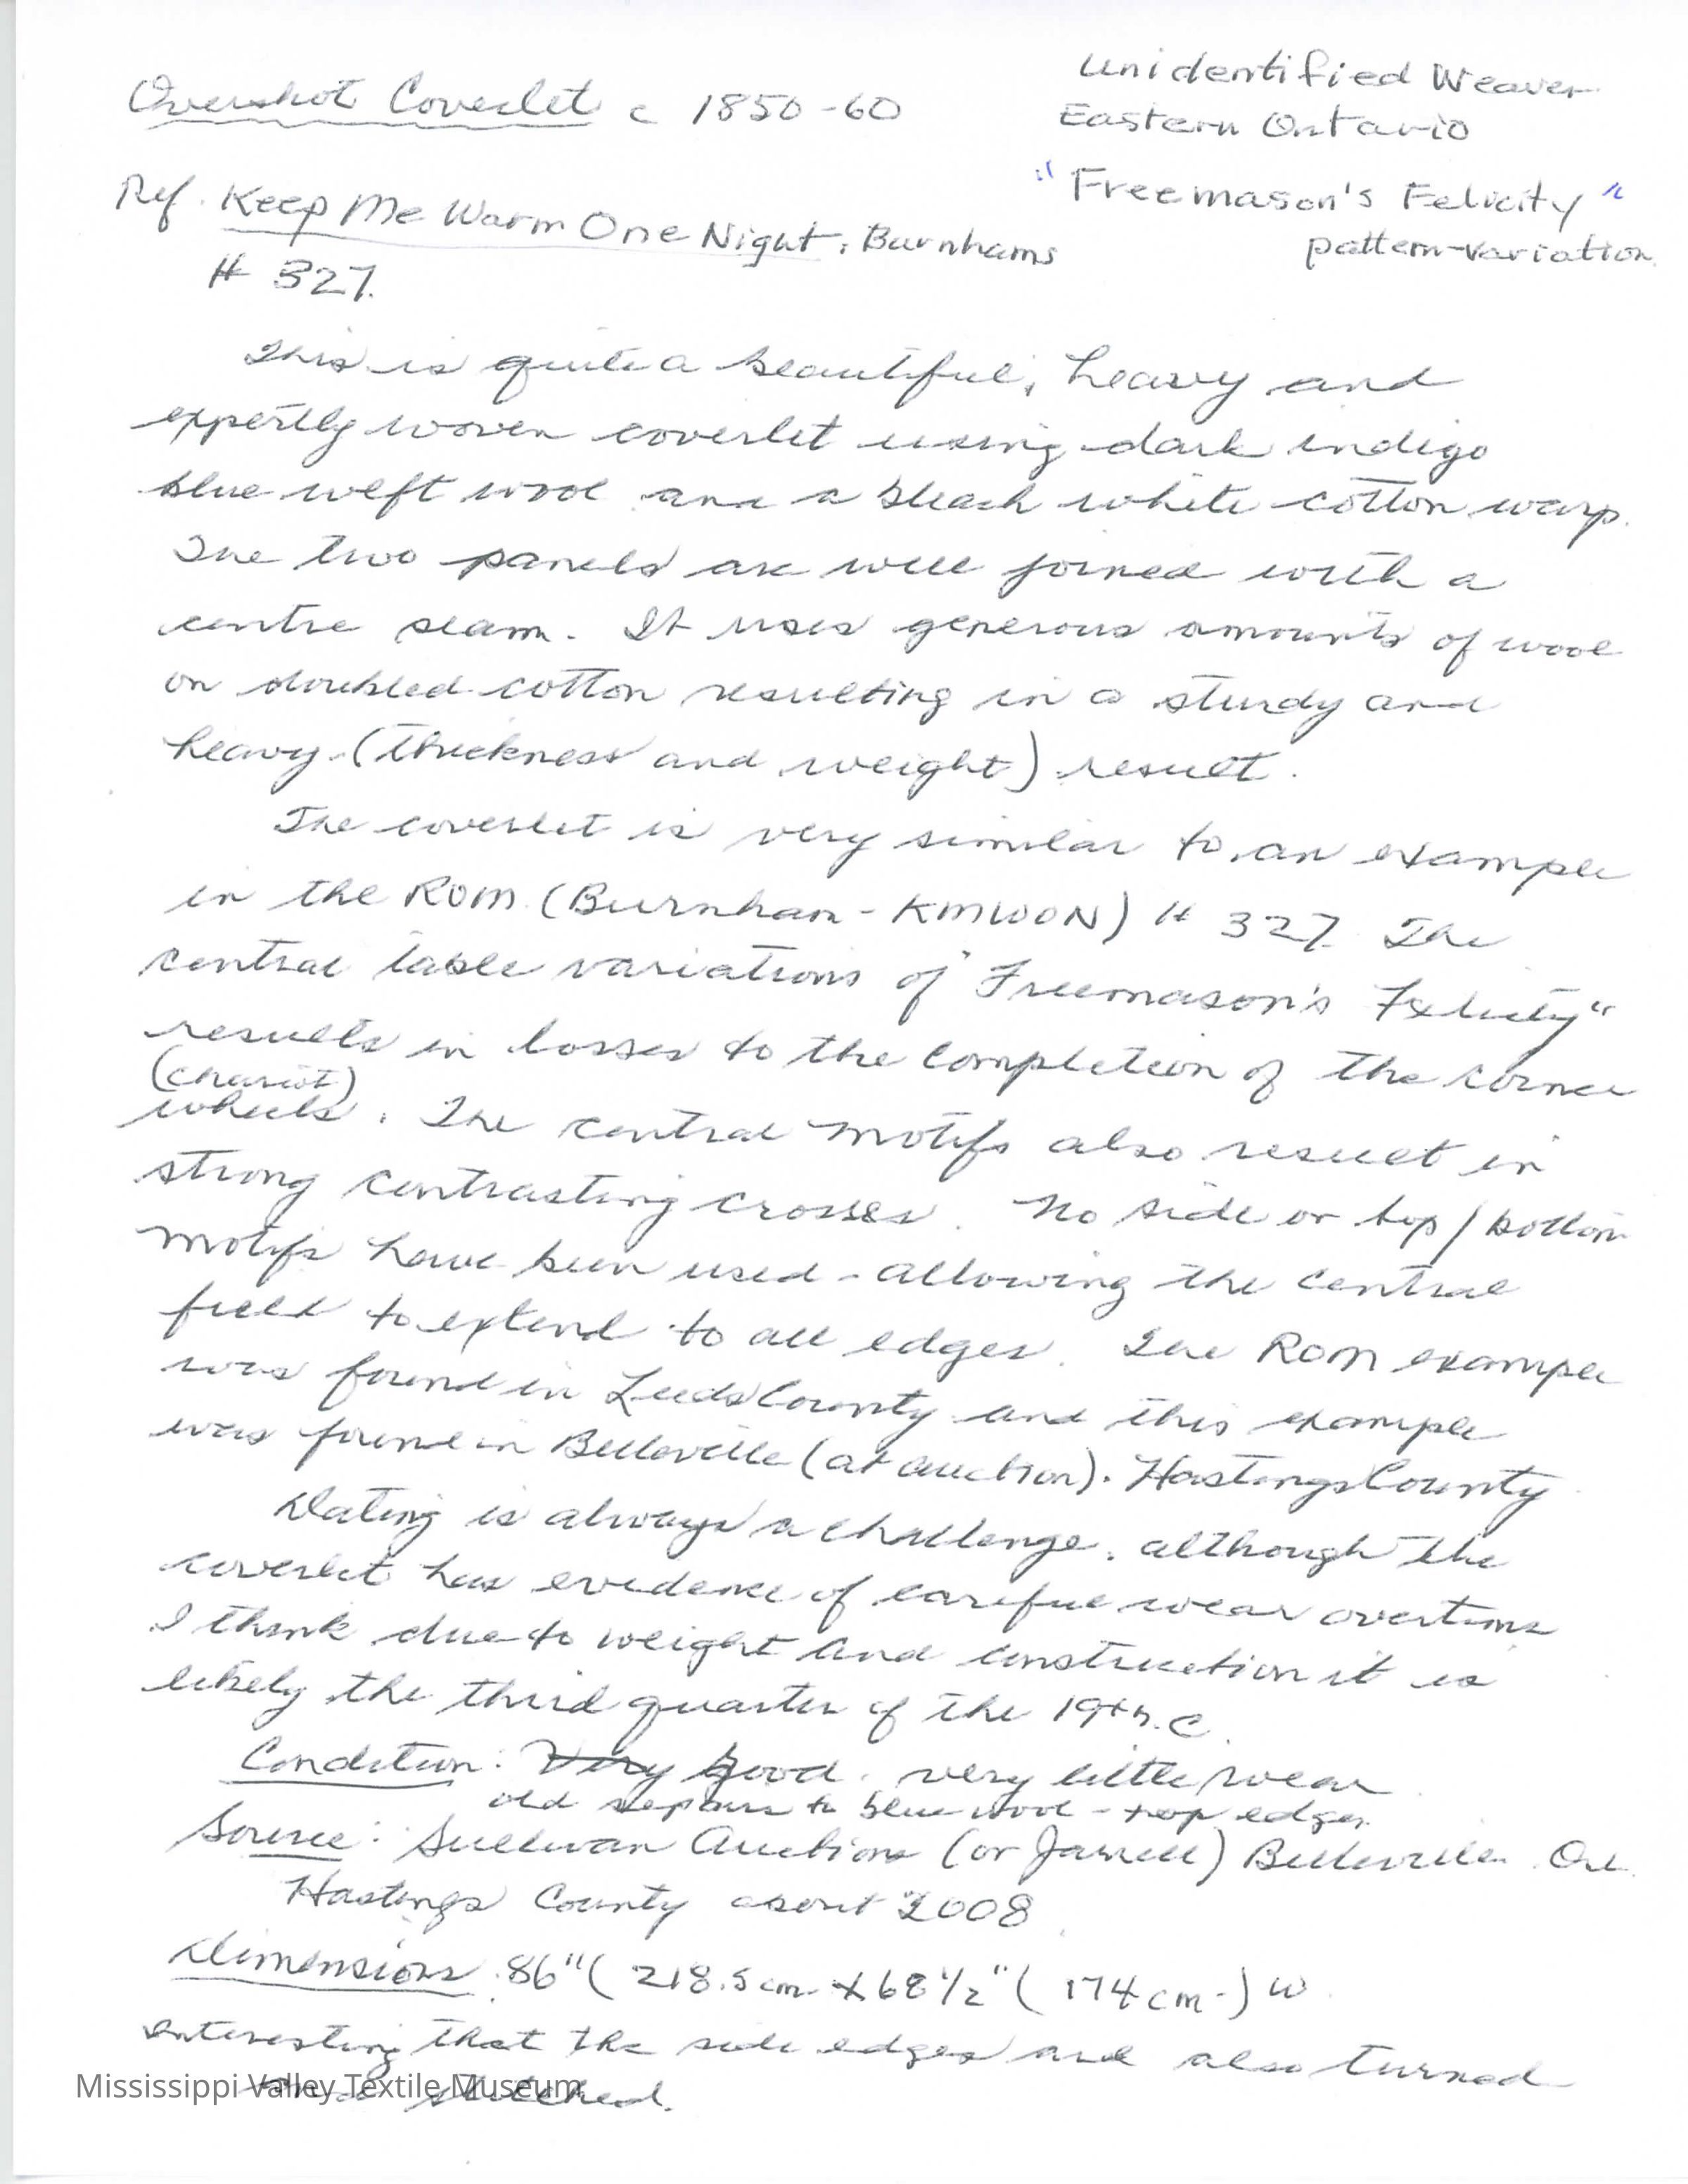 Overshot Coverlet c 1850-60
Unidentified Weaver
Eastern Ontario
"Freemason's Felicity"
pattern-variation
Ref. Keep Me Warm One Night, Burnhams
# 327.
This is quite a beautiful, heavy and
expertly woven coverlet using dark indigo
blue weft wool and a bleach white cotton warp.
The two panels are well joined with a
centre seam. It uses generous amounts of wool
on doubled cotton resulting in a sturdy and
heavy (thickness and weight) result.
The coverlet is very similar to an example
in the ROM (Burnham - KMWON) # 327. The
central table variations of "Freemason's Felicity"
results in losses to the completion of the corner
(chariot)
wheels. The central motifs also result in
strong contrasting crosses. No side or top/bottom
motifs have been used - allowing the central
field to extend to all edges. The ROM example
was found in Leeds County and this example
was found in Belleville (at auction). Hastings County
Dating is always a challenge. although the
coverlet has evidence of careful wear overtime
I think due to weight and construction it is
likely the third quarter of the 19th. C.
Condition: Very good. very little wear
old repairs to blue wool - top edges.
Source: Sullivan Auctions (or Jarrell) Belleville. Ont.
Hastings County about 2008
Dimensions 86" (218.5 cm. x 68 1/2" (174 cm.) W
interesting that the side edges are also turned
and stitched.
Mississippi Valley Textile Museum